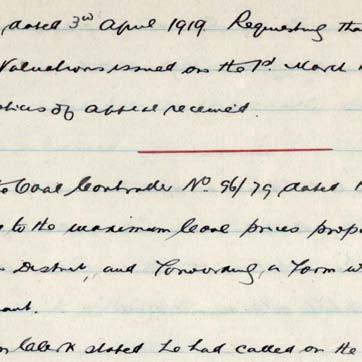 , dated 3rd April 1919. Requesting tha
Valuations issued on the 1st March
otices of appeal received.
to Coal Controller No 96/79, dated
e to the maximum Coal prices prop
s District, and forwarding a form w
ant.
on Clerk stated he had called on the